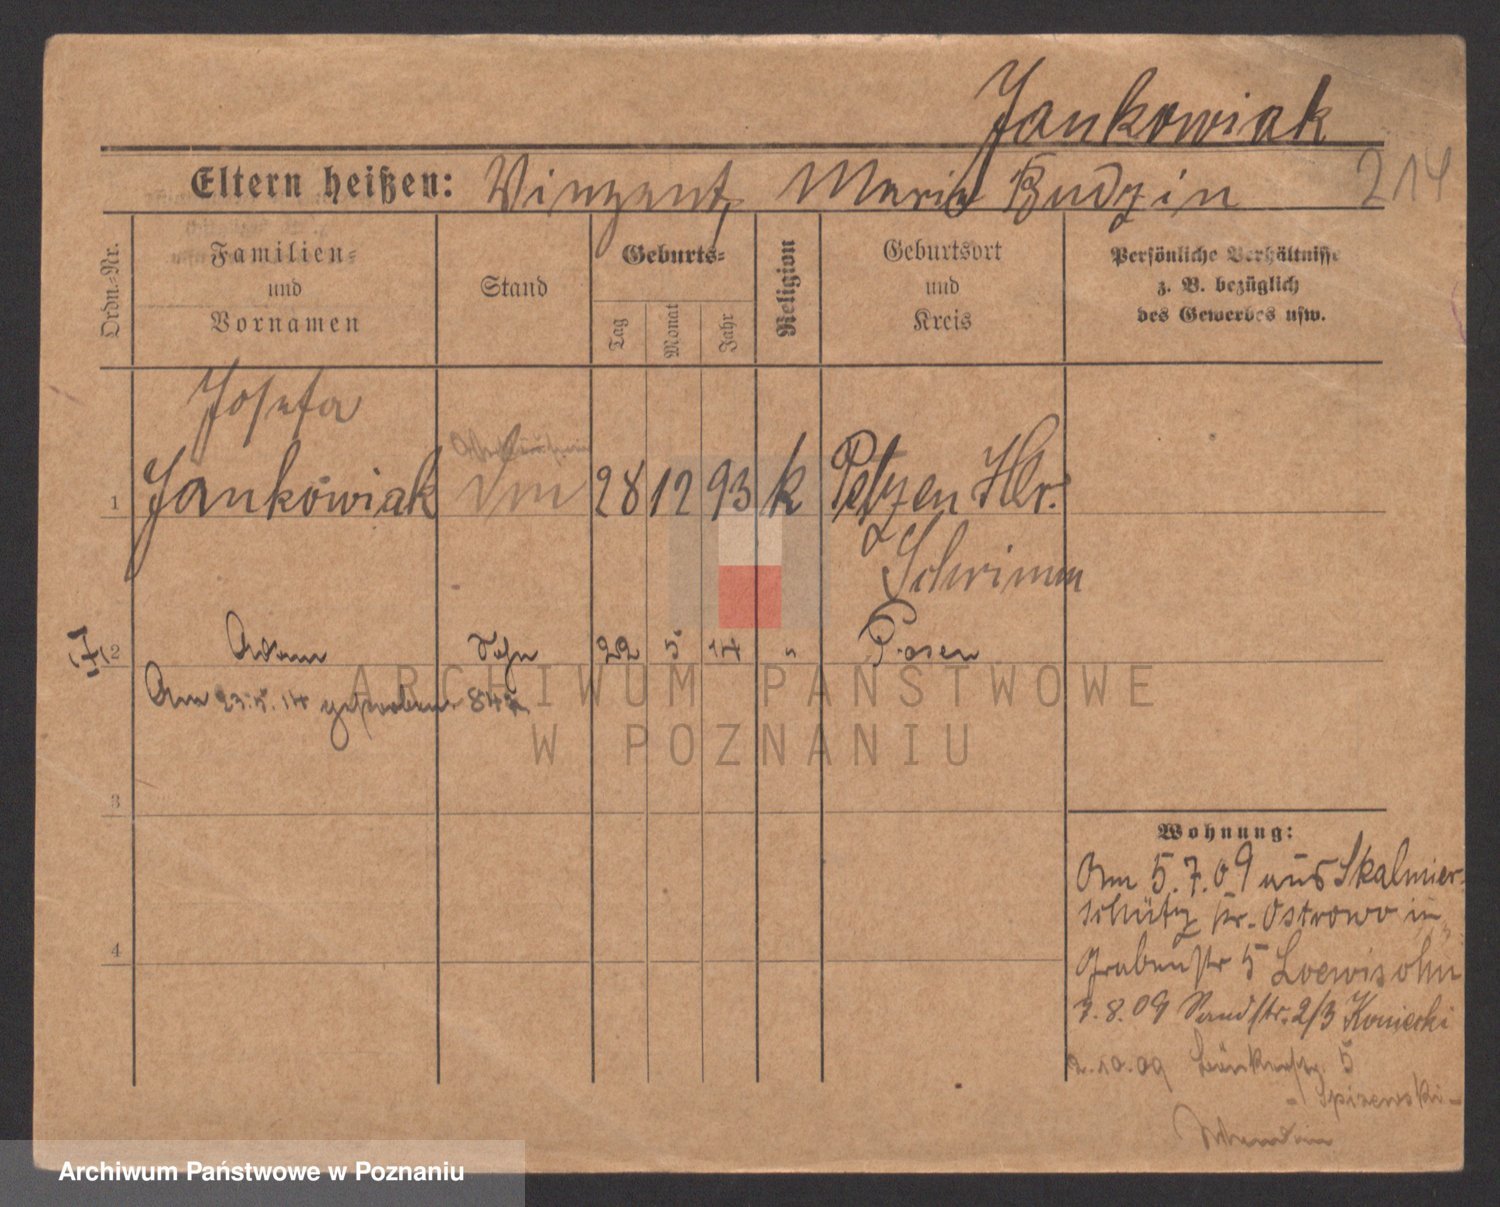 Jankowiak
Eltern heißen: Vinzent, Maria Budzin
214
Ordn.-Nr.
Familien-
und
Vornamen
Stand
Geburts-
Tag
Monat
Jahr
Religion
Geburtsort
und
Kreis
Persönliche Verhältnisse
z. B. bezüglich
des Gewerbes usw.
Josefa
1 Jankowiak 28 12 93 k Petzen Kr.
Schrimm
2 Adam Sohn 22 5 14 " Posen
Am 23.5.14 gestorben
3
4
Wohnung:
Am 5.7.09 aus Skalmier-
schütz Kr. Ostrowo in
Grabenstr 5 Loewisohn
7.8.09 Sandstr. 2/3 Koniecki
2.10.09 5
- Spizewski -
ARCHIWUM PAŃSTWOWE
W POZNANIU
Archiwum Państwowe w Poznaniu